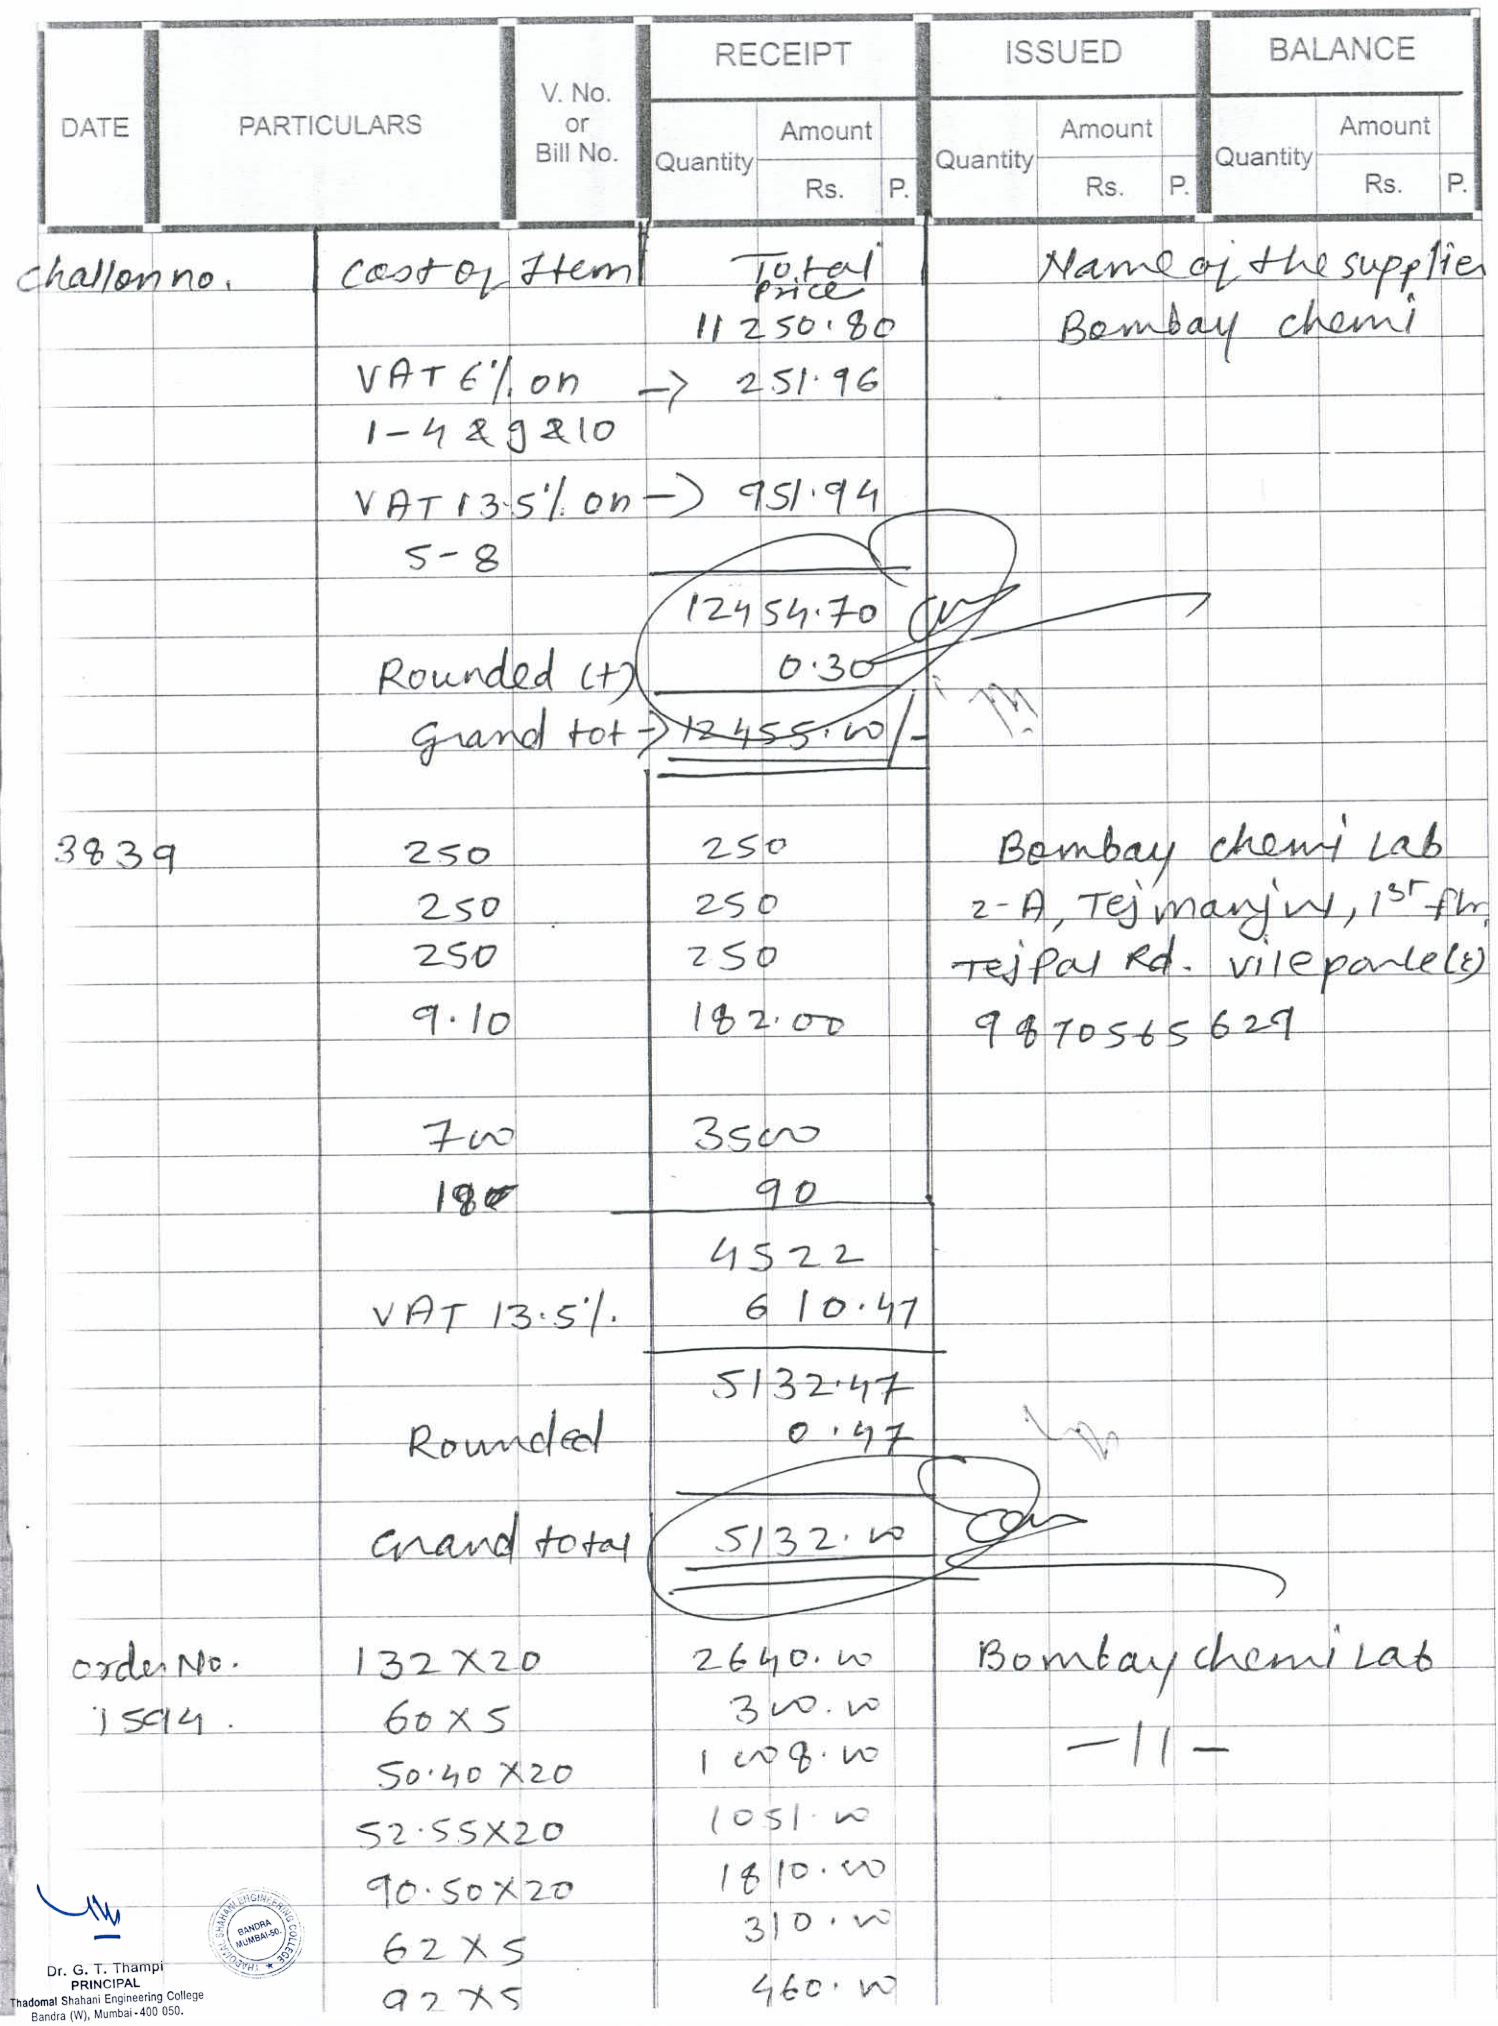 RECEIPT ISSUED BALANCE
DATE PARTICULARS V. No. or Bill No. Quantity Amount Rs. P. Quantity Amount Rs. P. Quantity Amount Rs. P.
challan no. cost of Item Total Price Name of the supplier
11250.80 Bombay chemi
VAT 6% on → 251.96
1-4 & 9 & 10
VAT 13.5% on → 951.94
5-8
12454.70
Rounded (+) 0.30
Grand tot → 12455.00/-
3839 250 250 Bombay chemi Lab
250 250 2-A, Tejmanju, 1st flr,
250 250 Tejpal Rd. vileparle(E)
9.10 182.00 9870565629
700 3500
180 90
4522
VAT 13.5% 610.47
5132.47
Rounded 0.47
Grand total 5132.00
order No. 132X20 2640.00 Bombay chemi Lab
1594. 60X5 300.00 -11-
50.40X20 1008.00
52.55X20 1051.00
90.50X20 1810.00
62X5 310.00
92X5 460.00
THADOMAL SHAHANI ENGINEERING COLLEGE
BANDRA
MUMBAI-50.
Dr. G. T. Thampi
PRINCIPAL
Thadomal Shahani Engineering College
Bandra (W), Mumbai-400 050.